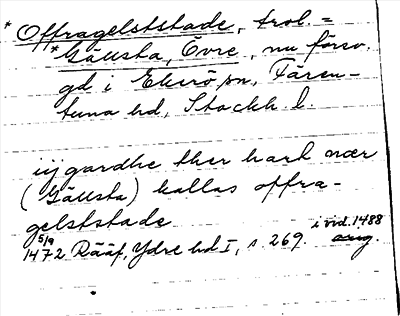 * Offragelststade, trol. =
* Gällsta, Övre, nu försv.
gd i Ekerö sn, Fären-
tuna hd, Stockh. l.
iij gardhe ther hart nær
(Gällsta) kallas offra-
gelststade
5/9 1472 Rääf, Ydre hd I, s. 269. i vid. 1488